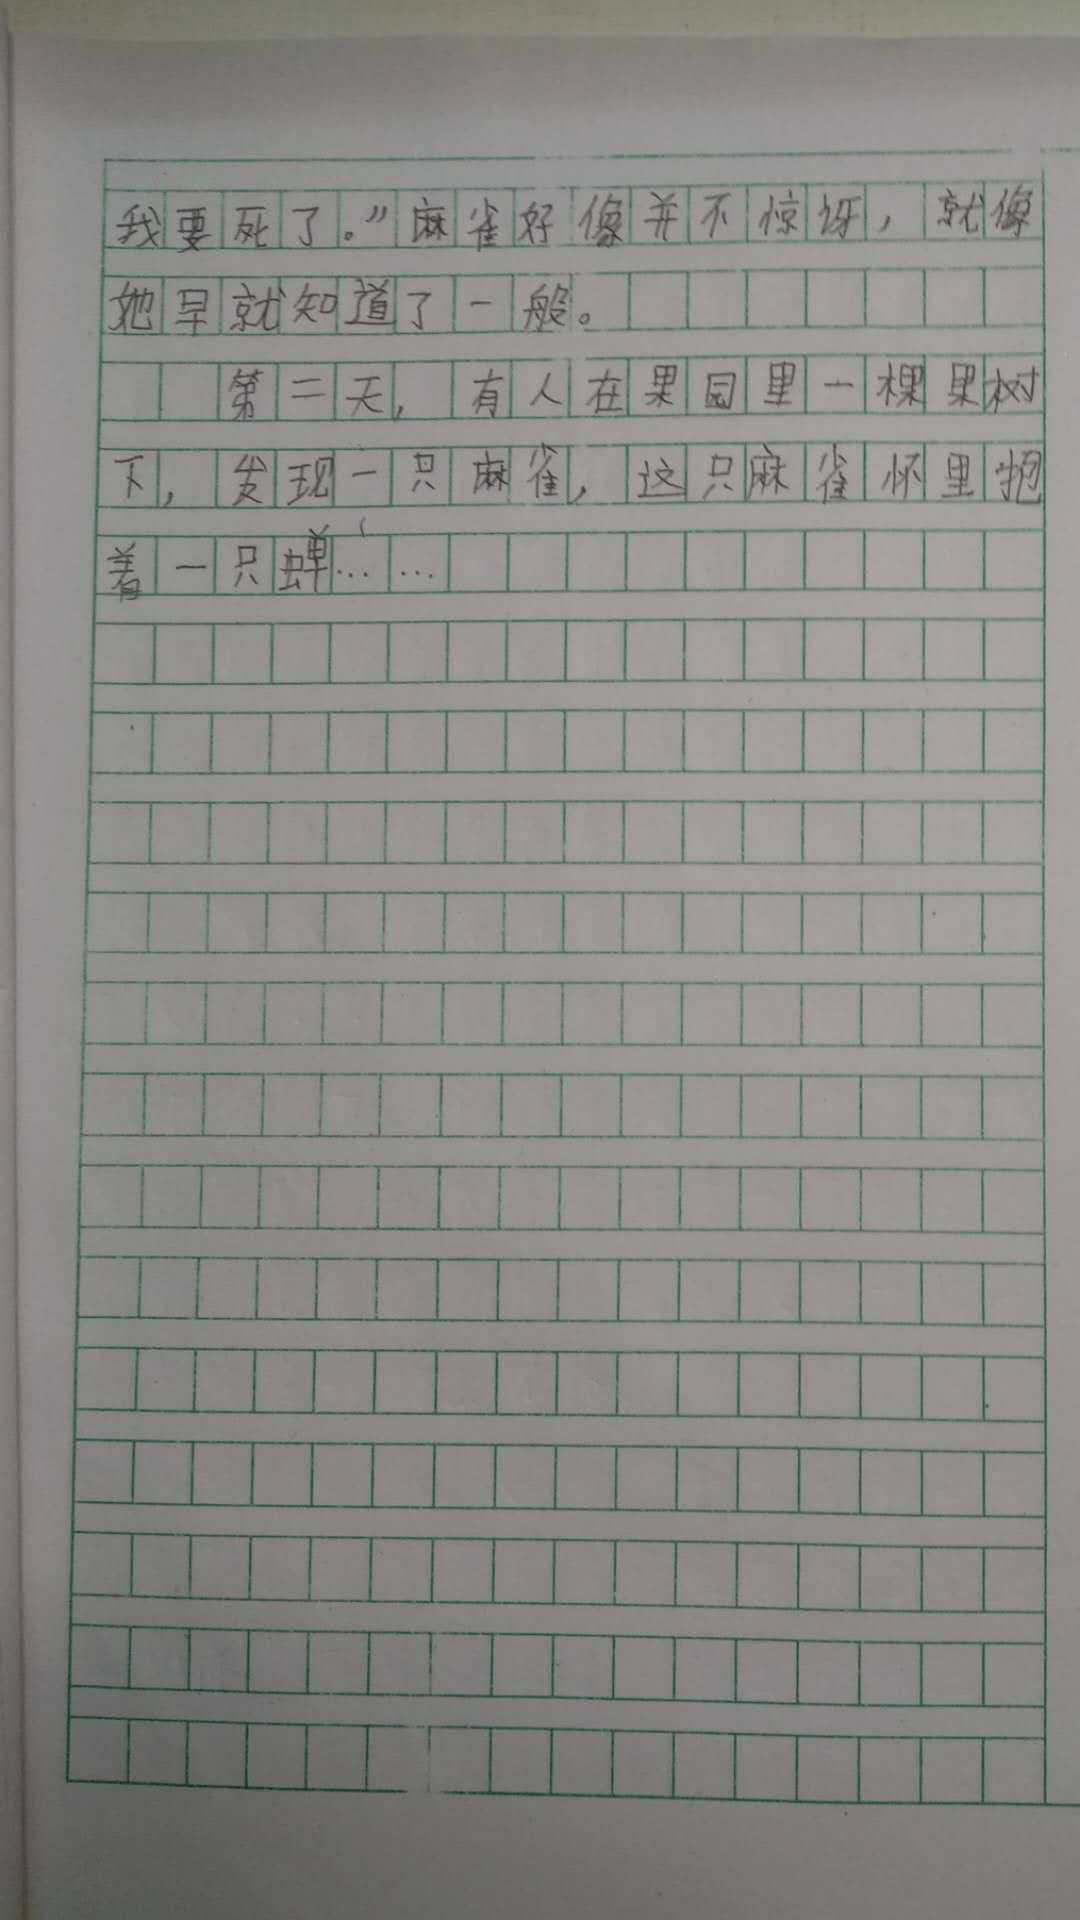 我要死了。”麻雀好像并不惊讶，就像
她早就知道了一般。
第二天，有人在果园里一棵果树
下，发现一只麻雀，这只麻雀怀里抱
着一只蝉……